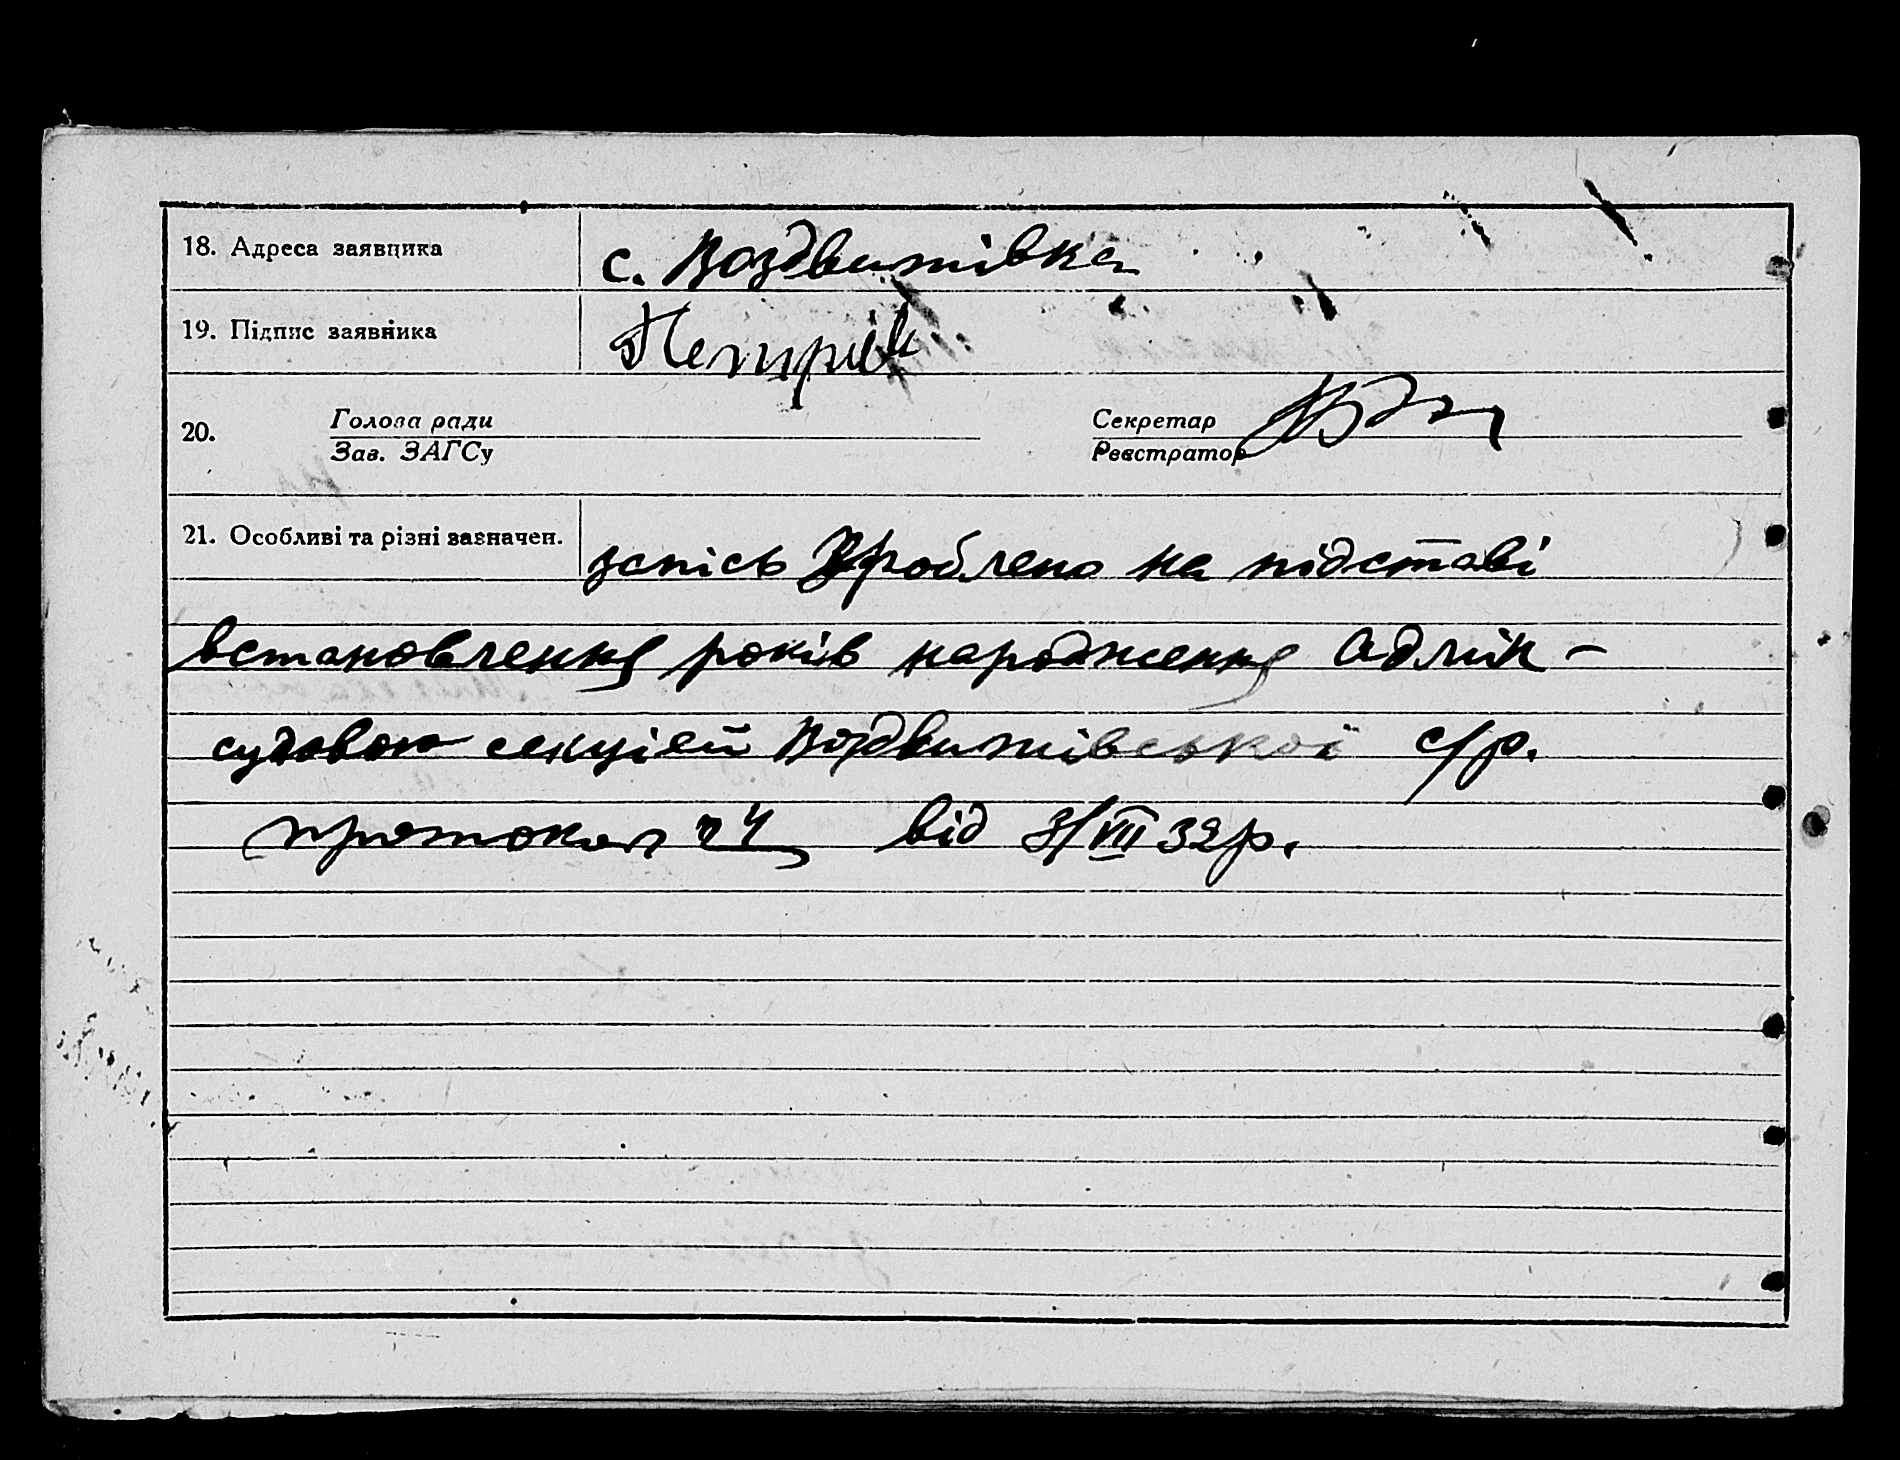 18. Адреса заявника с. Воздвижівка
19. Підпис заявника Петрик
20. Голова ради Секретар
Зав. ЗАГСу Реєстратор
21. Особливі та різні зазначен. запісь зроблено на підставі
встановлення років народження адмін-
судовою секцієй Воздвижівської с/р.
протокол ч 4 від 3/VII 32 р.